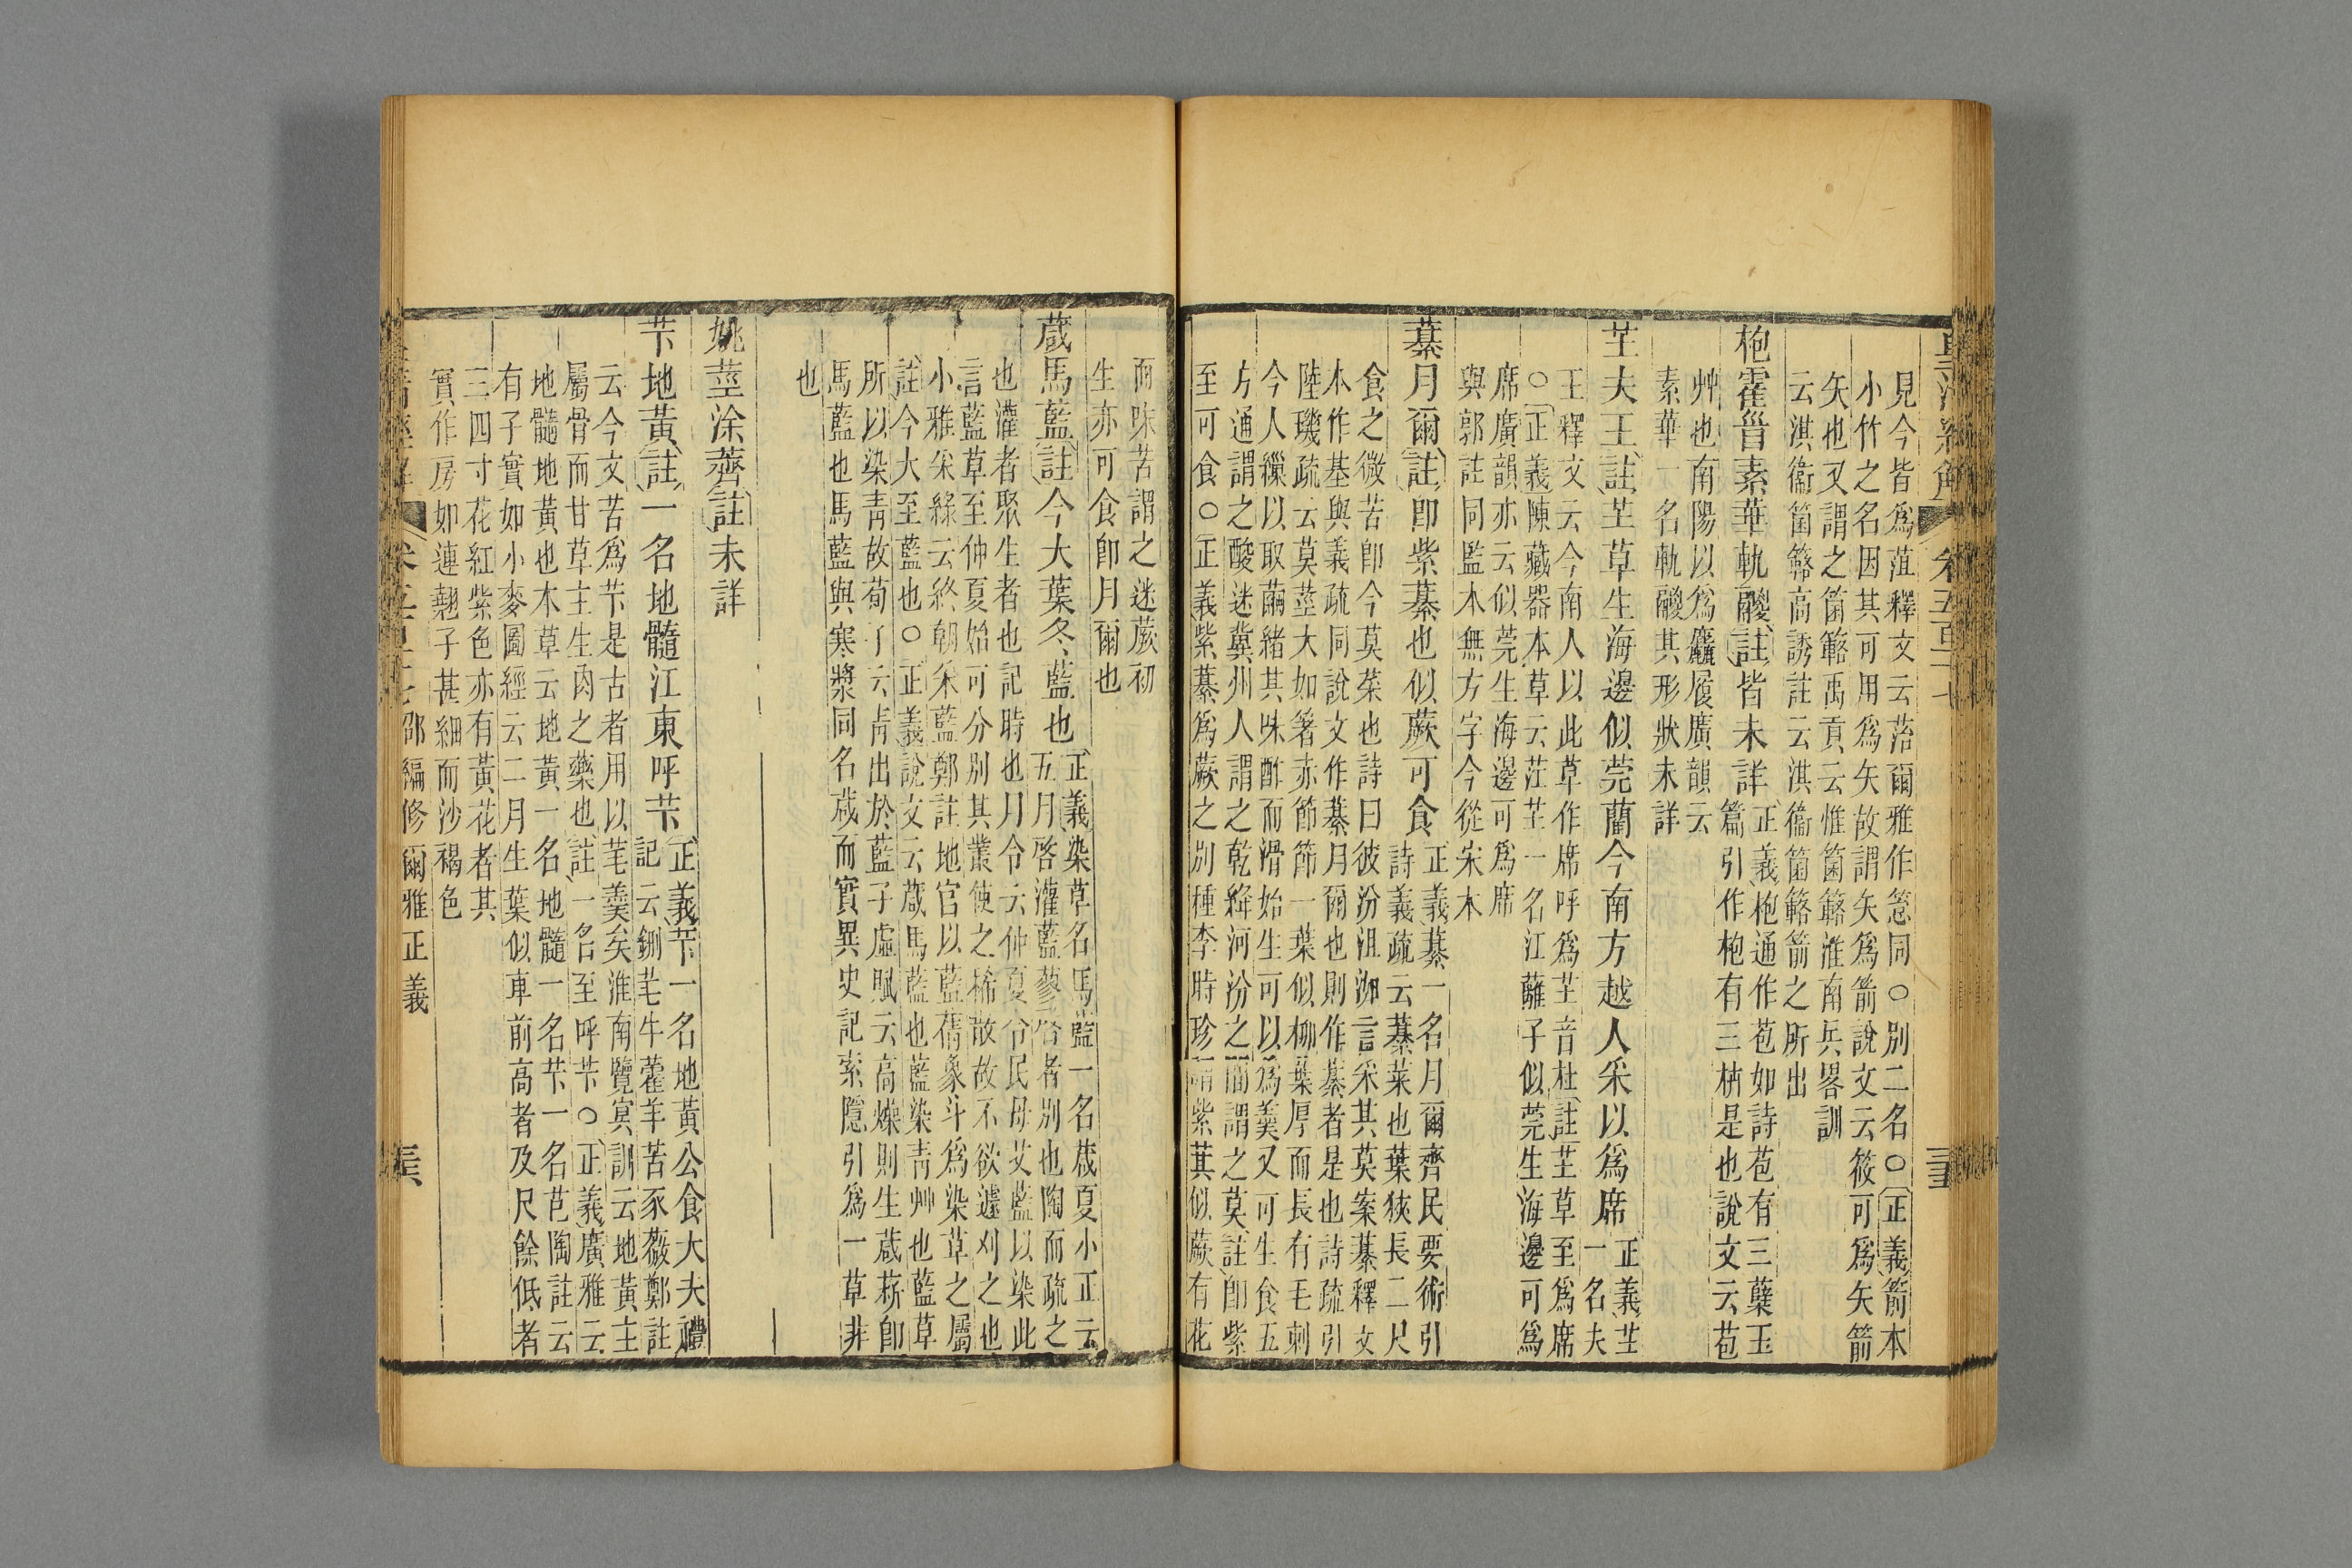 皇清經解 卷五百十七
見今皆爲菹釋文云菭爾雅作䈚同○別二名○正義箭本
小竹之名因其可用爲矢故謂矢爲箭說文云筱可爲矢箭
矢也又謂之箘簵禹貢云惟箘簵淮南兵畧訓
云淇衞箘簵高誘註云淇衞箘簵箭之所出
枹霍首素華軌鬷註皆未詳正義枹通作苞如詩苞有三蘖玉
篇引作枹有三枿是也說文云苞
艸也南陽以爲麤履廣韻云
素華一名軌鬷其形狀未詳
芏夫王註芏草生海邊似莞藺今南方越人采以爲席正義芏
一名夫
王釋文云今南人以此草作席呼爲芏音杜註芏草至爲席
○正義陳藏器本草云茳芏一名江蘺子似莞生海邊可爲
席廣韻亦云似莞生海邊可爲席
與郭註同監本無方字今從宋本
藄月爾註卽紫藄也似蕨可食正義藄一名月爾齊民要術引
詩義疏云藄菜也葉狹長二尺
食之微苦卽今莫菜也詩曰彼汾沮洳言采其莫案藄釋文
本作基與義疏同說文作藄月爾也則作藄者是也詩疏引
陸璣疏云莫莖大如箸赤節節一葉似柳葉厚而長有毛刺
今人繅以取繭緒其味酢而滑始生可以爲羹又可生食五
方通謂之酸迷冀州人謂之乾絳河汾之間謂之莫註卽紫
至可食○正義紫藄爲蕨之別種李時珍謂紫萁似蕨有花
而味苦謂之迷蕨初
生亦可食卽月爾也
葴馬藍註今大葉冬藍也正義染草名馬藍一名葴夏小正云
五月啓灌藍蓼啓者別也陶而疏之
也灌者聚生者也記時也月令云仲夏令民毋艾藍以染此
言藍草至仲夏始可分別其叢使之稀散故不欲遽刈之也
小雅采綠云終朝采藍鄭註地官以藍蒨象斗爲染草之屬
註今大至藍也○正義說文云葴馬藍也藍染青艸也藍草
所以染靑故荀子云靑出於藍子虛賦云高燥則生葴菥卽
馬藍也馬藍與寒漿同名葴而實異史記索隱引爲一草非
也
姚莖涂薺註未詳
芐地黃註一名地髓江東呼芐正義芐一名地黃公食大夫禮
記云鉶芼牛藿羊苦豕薇鄭註
云今文苦爲芐是古者用以芼羹矣淮南覽冥訓云地黃主
屬骨而甘草主生肉之藥也註一名至呼芐○正義廣雅云
地髓地黃也本草云地黃一名地髓一名芐一名芑陶註云
有子實如小麥圖經云二月生葉似車前高者及尺餘低者
三四寸花紅紫色亦有黃花者其
實作房如連翹子甚細而沙褐色
卷五百十七 邵編修爾雅正義